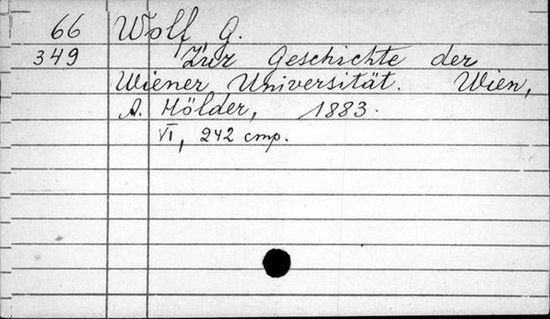 66 Wolf, G.
349 Zur Geschichte der
Wiener Universität. Wien,
A. Hölder, 1883.
VI, 242 cmp.